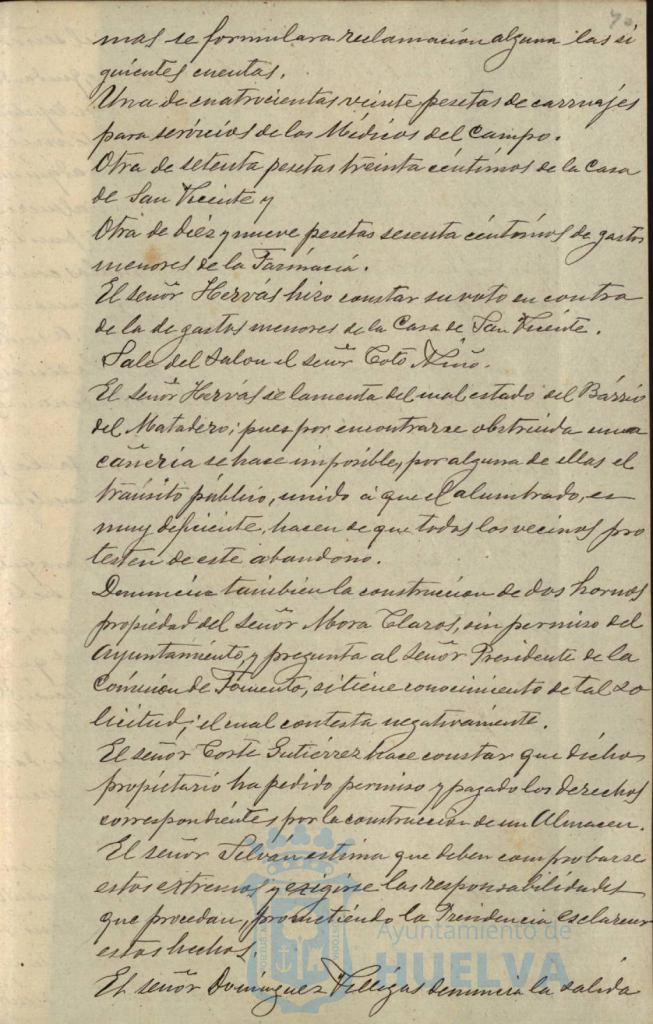 mas se formulara reclamacion alguna las si
guientes cuentas.
Una de cuatrocientas veinte pesetas de carruajes
para servicios de los Médicos del Campo.
Otra de setenta pesetas treinta céntimos de la Casa
de San Vicente y
Otra de diéz y nueve pesetas sesenta céntimos de gastos
menores de la Farmacia.
El señor Hervás hizo constar su voto en contra
de la de gastos menores de la Casa de San Vicente.
Sale del Salon el señor Coto Niño.
El señor Hervás se lamenta del mal estado del Bárrio
del Matadero; pues por encontrarse obstruida una
cañeria se hace imposible, por alguna de ellas el
tránsito público, unido á que el alumbrado, es
muy deficiente, hacen de que todos los vecinos pro
testen de este abandono.
Denuncia tambien la construccion de dos hornos
propiedad del señor Mora Claros, sin permiso del
Ayuntamiento, y pregunta al Señor Presidente de la
Comision de Fomento, si tiene conocimiento de tal so
licitud; el cual contesta negativamente.
El señor Corte Gutiérrez hace constar que dicho
propietario ha pedido permiso y pagado los derechos
correspondientes por la construccion de un Almacen.
El señor Silvan estima que deben comprobarse
estos extremos y exigirse las responsabilidades
que procedan, prometiendo la Presidencia esclarecer
estos hechos.
El señor Dominguez Villegas denuncia la salida
Ayuntamiento de
HUELVA